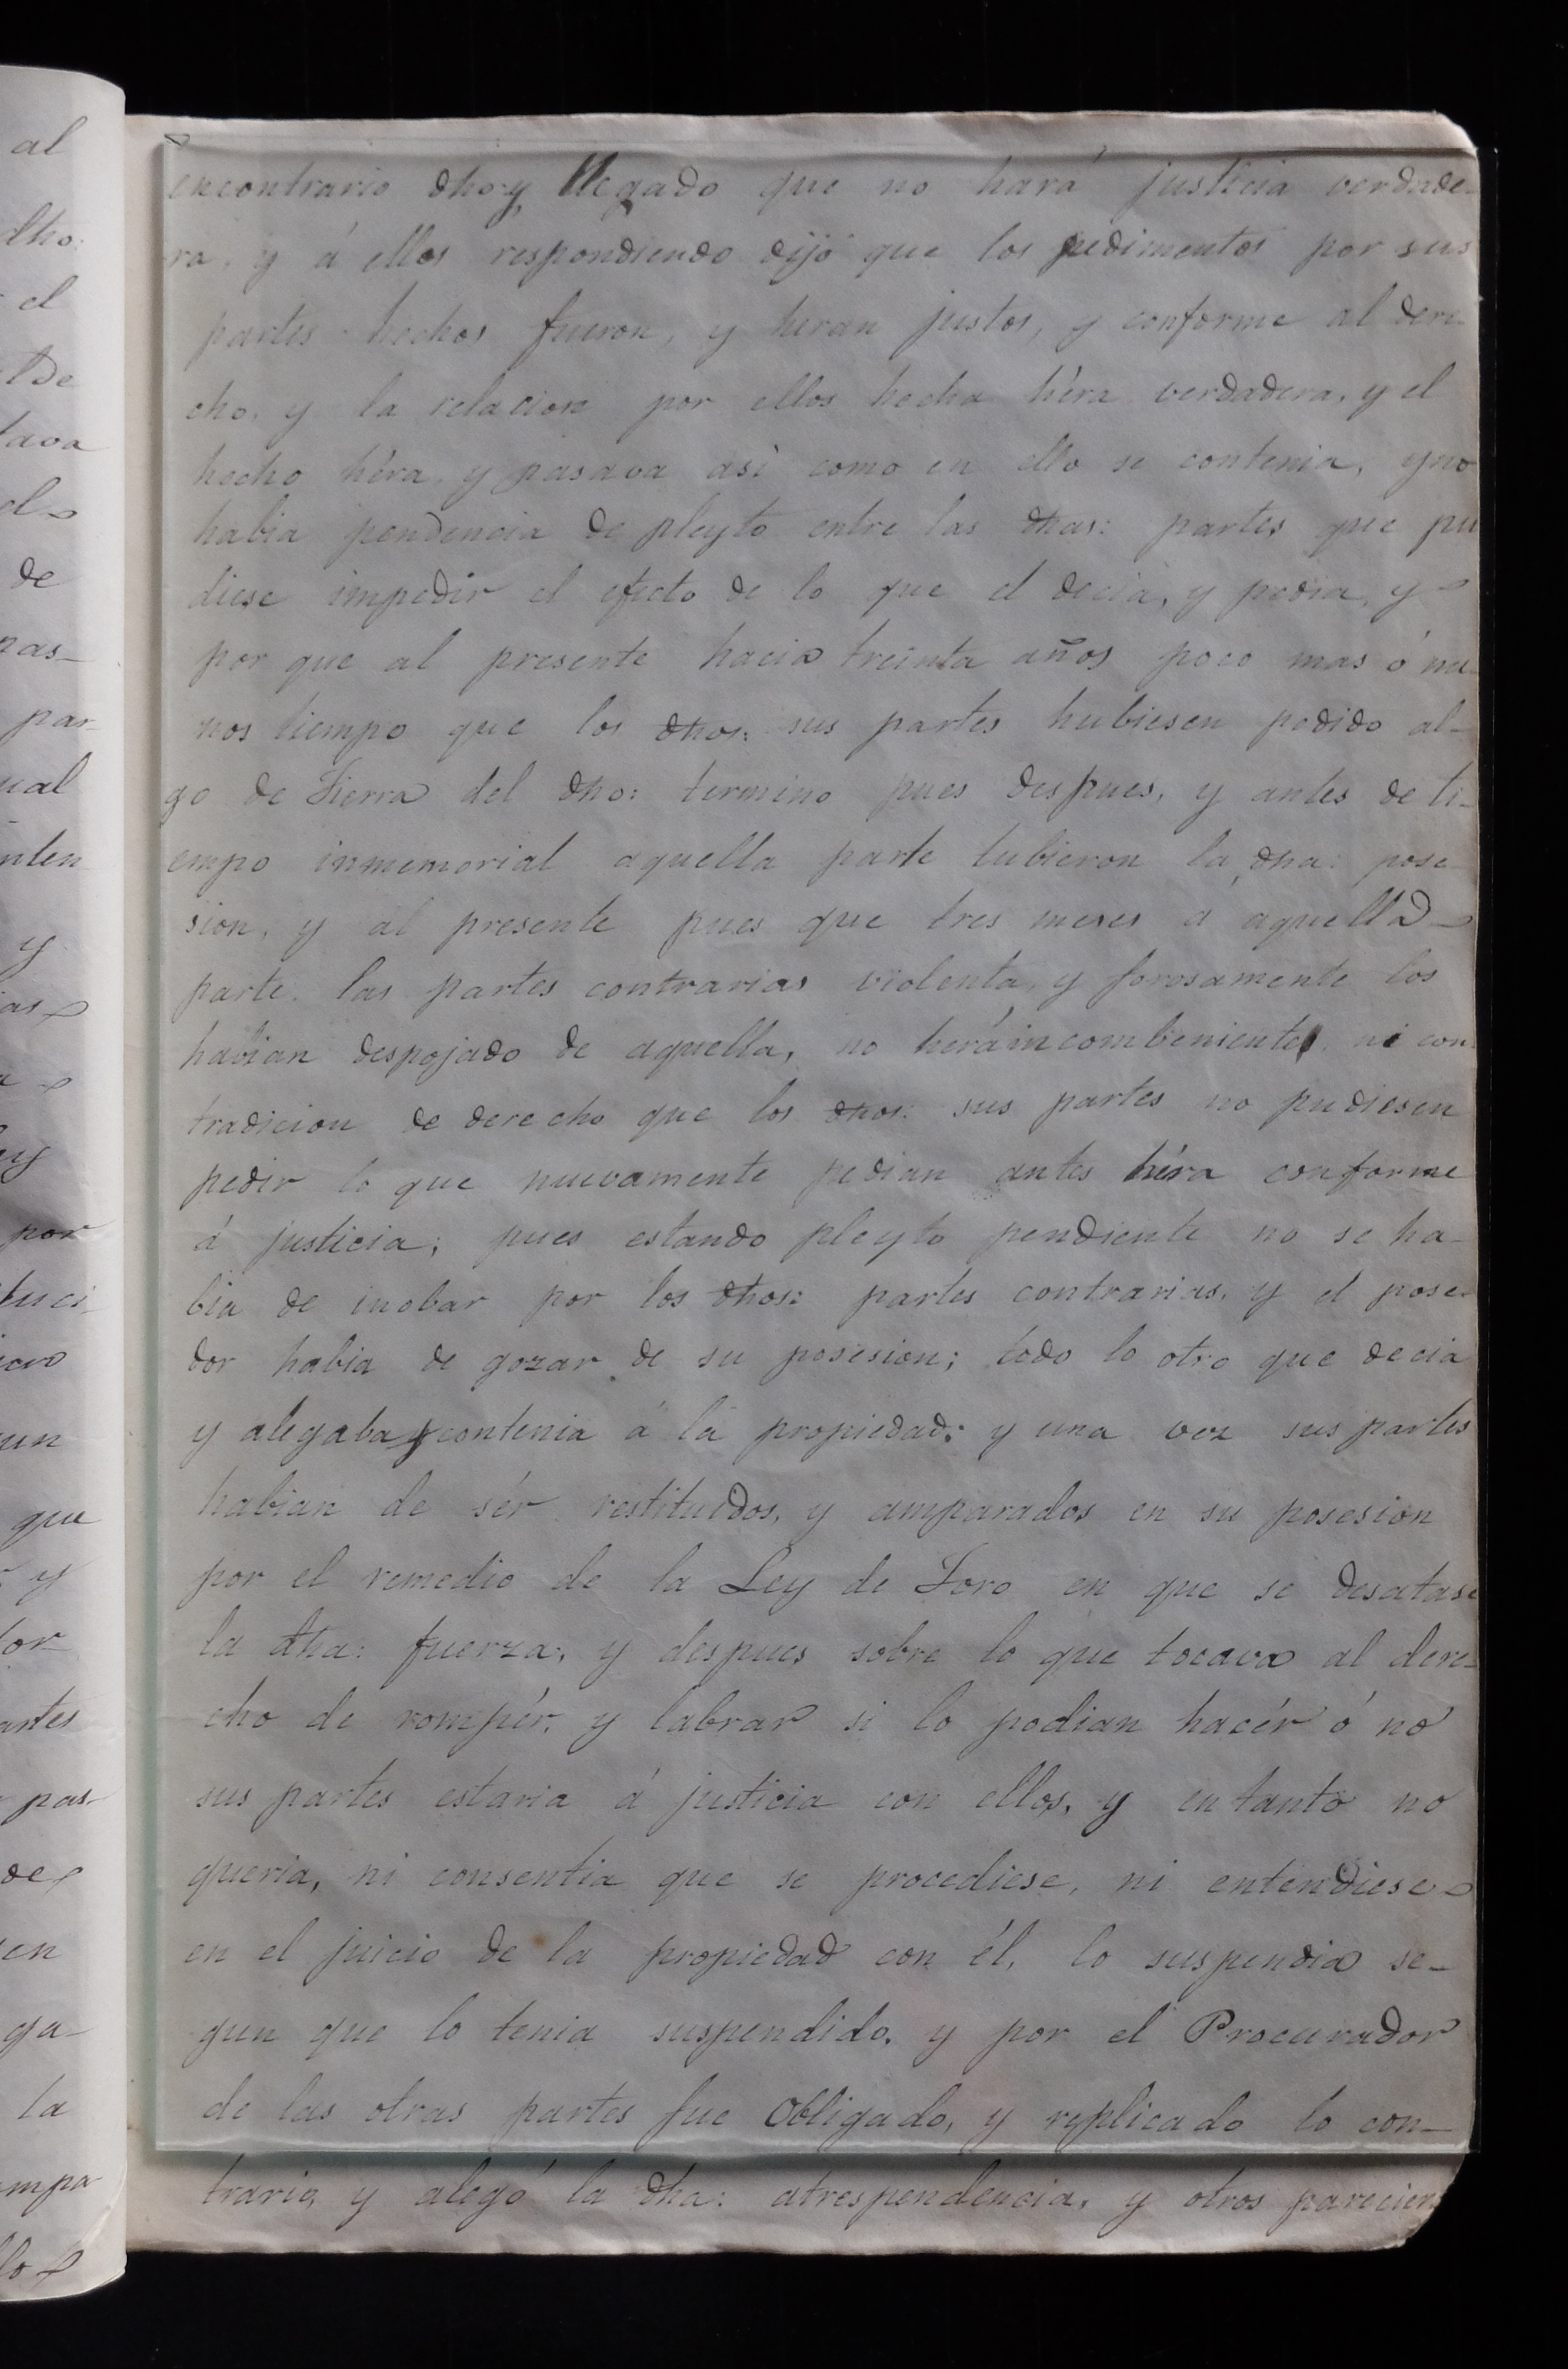 encontrario dho y llegado que no hará justicia verdade-
ra, y á ellos respondiendo dijo que los pedimentos por sus
partes hechos fueron, y heran justos, y conforme al dere-
cho, y la relacion por ellos hecha héra verdadera, y el
hecho héra, y pasava asi como en ello se contenia, y no
habia pendencia de pleyto entre las dhas: partes que pu
diese impedir el efecto de lo que el decia, y pedia, y
por que al presente hacia treinta años poco mas ó me-
nos tiempo que los dhos: sus partes hubiesen pedido al-
go de Tierra del dho: termino pues despues, y antes de ti-
empo inmemorial aquella parte tubieron la dha: pose-
sion, y al presente pues que tres meses á aquella
parte las partes contrarias violenta, y forosamente los
habian despojado de aquella, no herá incombeniente ni con-
tradicion de derecho que los dhos: sus partes no pudiesen
pedir lo que nuevamente pedian antes héra conforme
á justicia; pues estando pleyto pendiente no se ha-
bia de inobar por los dhos: partes contrarias, y el pose-
dor habia de gozar de su posesion; todo lo otro que decia
y alegaba y contenia á la propiedad; y una vez sus partes
habian de sér restituidos, y amparados en su posesion
por el remedio de la Ley de Toro en que se desatase
la dha: fuerza, y despues sobre lo que tocava al dere-
cho de rompér, y labrar si lo podian hacér ó no
sus partes estaria á justicia con ellos, y en tanto no
queria, ni consentia que se procediese, ni entendiese
en el juicio de la propiedad con él, lo suspendia se-
gun que lo tenia suspendido, y por el Procurador
de las otras partes fue Obligado, y replicado lo con-
trario, y alegó la dha: atrespendencia, y otros parecien
al
dho:
el
de
y
por
que
y
pas-
de
en
ga-
la
mpa